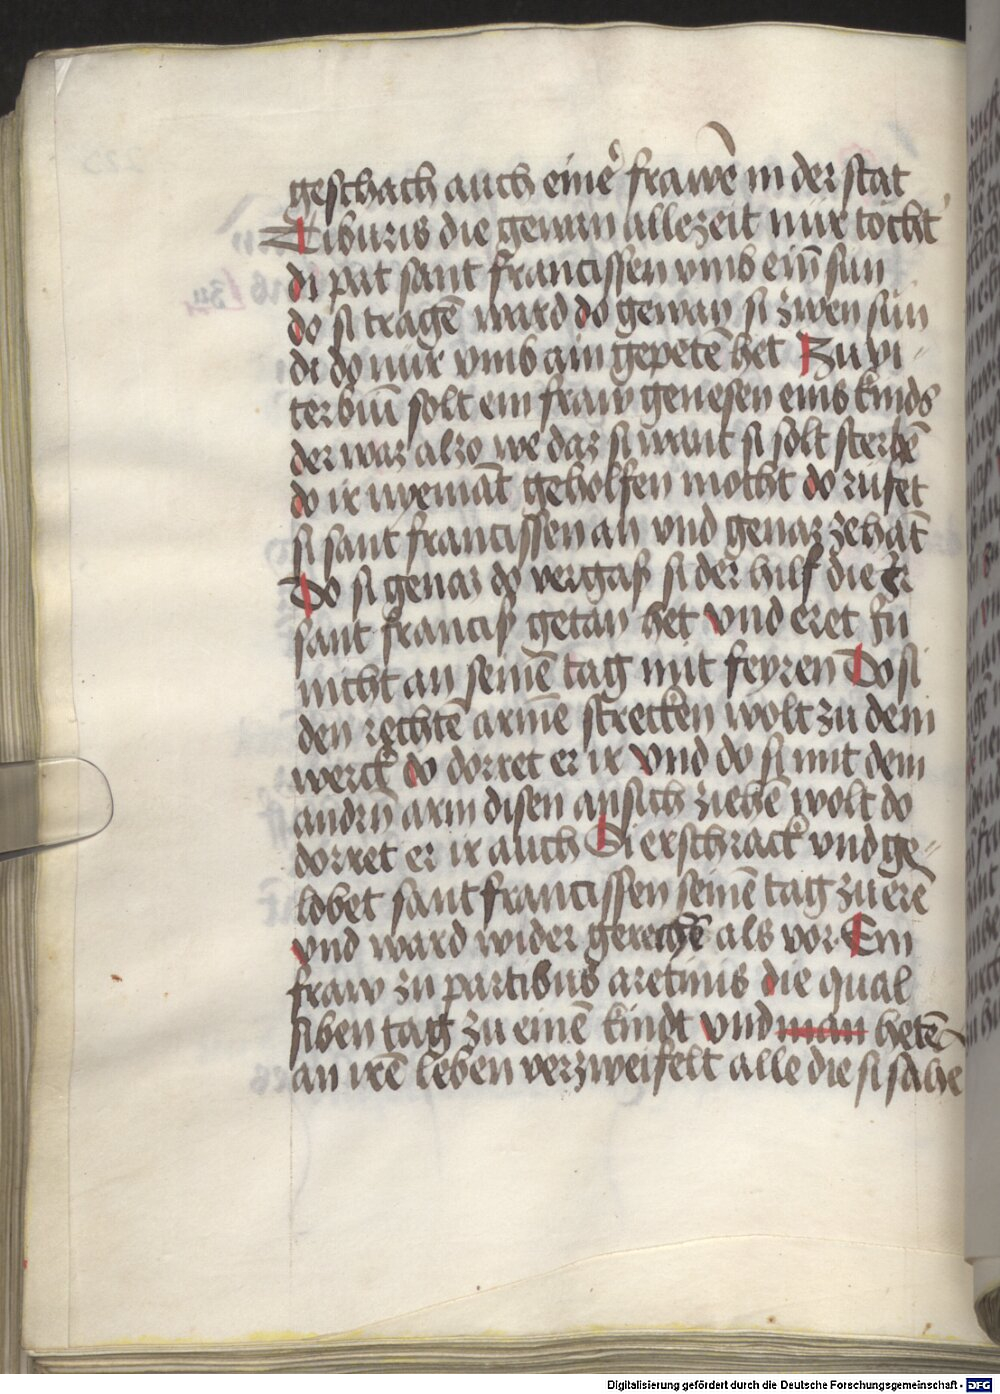 geschach auch einẽ frawẽ in der stat
Tiburis die gewan allezeit nür tocht'
di pat sant francissen vmb eiñ sun
do si tragẽ ward do gewan si zwen sün
di do nür vmb ain gepetẽ het Zu vi-
terbiũ solt ein fraw genesen eins kinds
der waz alzo we daz si want si solt sterbẽ
do ir nyemãt geholfen mocht do rüfet
si sant francissen an vnd genaz zehãt
Do si genaz do vergaß si der hilf die ir
sant franciß getan het vnd eret in
nicht an seinẽ tag mit feyren Do si
den rechtẽ armẽ strecken wolt zu dem
werck do dorret er ir vnd do si mit dem
andrñ arm disen an sich ziehẽ wolt do
dorret er ir auch Si erschrack vnd ge-
lobet sant francissen seinẽ tag zu ere
vnd ward wider gerechẽ als vor Ein
fraw zu partibus aretinis die qual
siben tag zu einẽ kindt vnd man hetẽ
an irẽ leben verzweifelt alle die si sahẽ
Digitalisierung gefördert durch die Deutsche Forschungsgemeinschaft - DFG